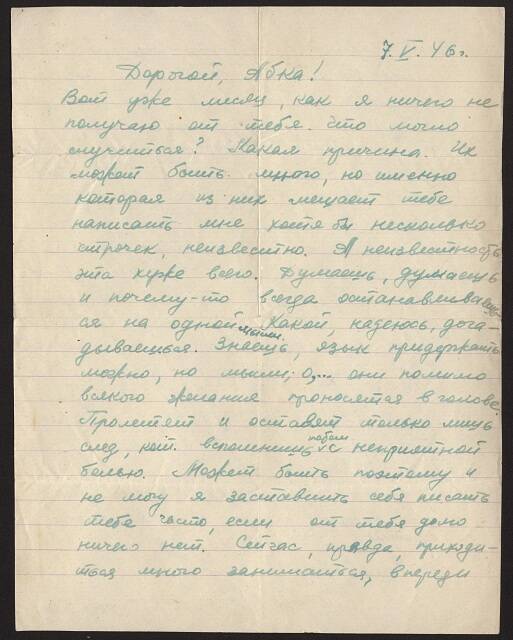 7.V.46г.
Дорогой, Абка!
Вот уже месяц, как я ничего не
получаю от тебя. Что могло
случиться? Какая причина. Их
может быть много, но именно
которая из них мешает тебе
написать мне хотя бы несколько
строчек, неизвестно. А неизвестность
эта хуже всего. Думаешь, думаешь
и почему-то всегда останавливаешь-
ся на одной мысли. Какой, надеюсь, дога-
дываешься. Знаешь, язык придержать
можно, но мысли, О,... они помимо
всякого желания проносятся в голове.
Пролетят и оставят только лишь
след, кот. вспомнишь с неприятной
болью. Может быть поэтому и
не могу я заставить себя писать
тебе часто, если от тебя долго
ничего нет. Сейчас, правда, приходи-
ться много заниматься, впереди